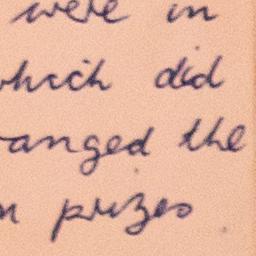 were in
which did
ranged the
n prizes